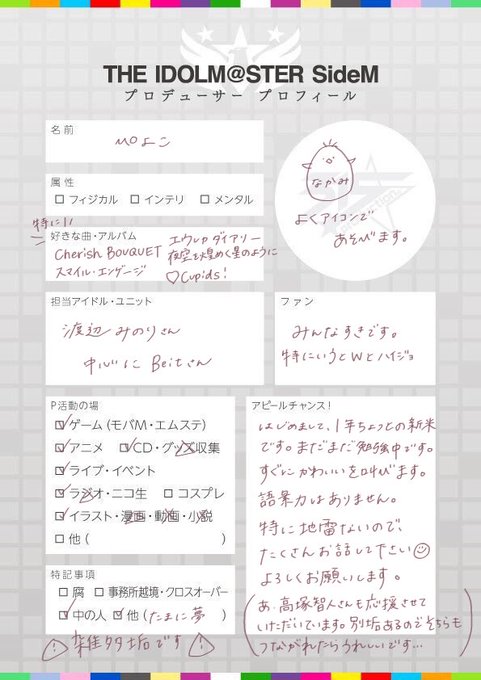 THE IDOLM@STER SideM
プロデューサー プロフィール
名前
MOよこ
なかみ
よくアイコンで
あそびます。
属性
□ フィジカル □ インテリ □ メンタル
特に!!
好きな曲・アルバム
Cherish BOUQUET
スマイル・エンゲージ
エウレカダイアリー
夜空を煌めく星のように
♡Cupids!
担当アイドル・ユニット
渡辺みのりさん
中心に Beitさん
ファン
みんなすきです。
特にいうとWとハイジョ
P活動の場
☑ ゲーム(モバM・エムステ)
☑ アニメ ☑ CD・グッズ収集
☑ ライブ・イベント
☑ ラジオ・ニコ生 □ コスプレ
☑ イラスト・漫画・動画・小説
□ 他( )
アピールチャンス!
はじめまして、1年ちょっとの新米
です。まだまだ勉強中です。
すぐにかわいいを叫びます。
語彙力はありません。
特に地雷ないので、
たくさんお話して下さい☺
よろしくお願いします。
(あ、高塚智人さんも応援させて
いただいています。別垢あるのでそちらも
つながれたらうれしいです…)
特記事項
□ 腐 □ 事務所越境・クロスオーバー
☑ 中の人 ☑ 他(たまに夢)
⚠ 雑多垢です ⚠